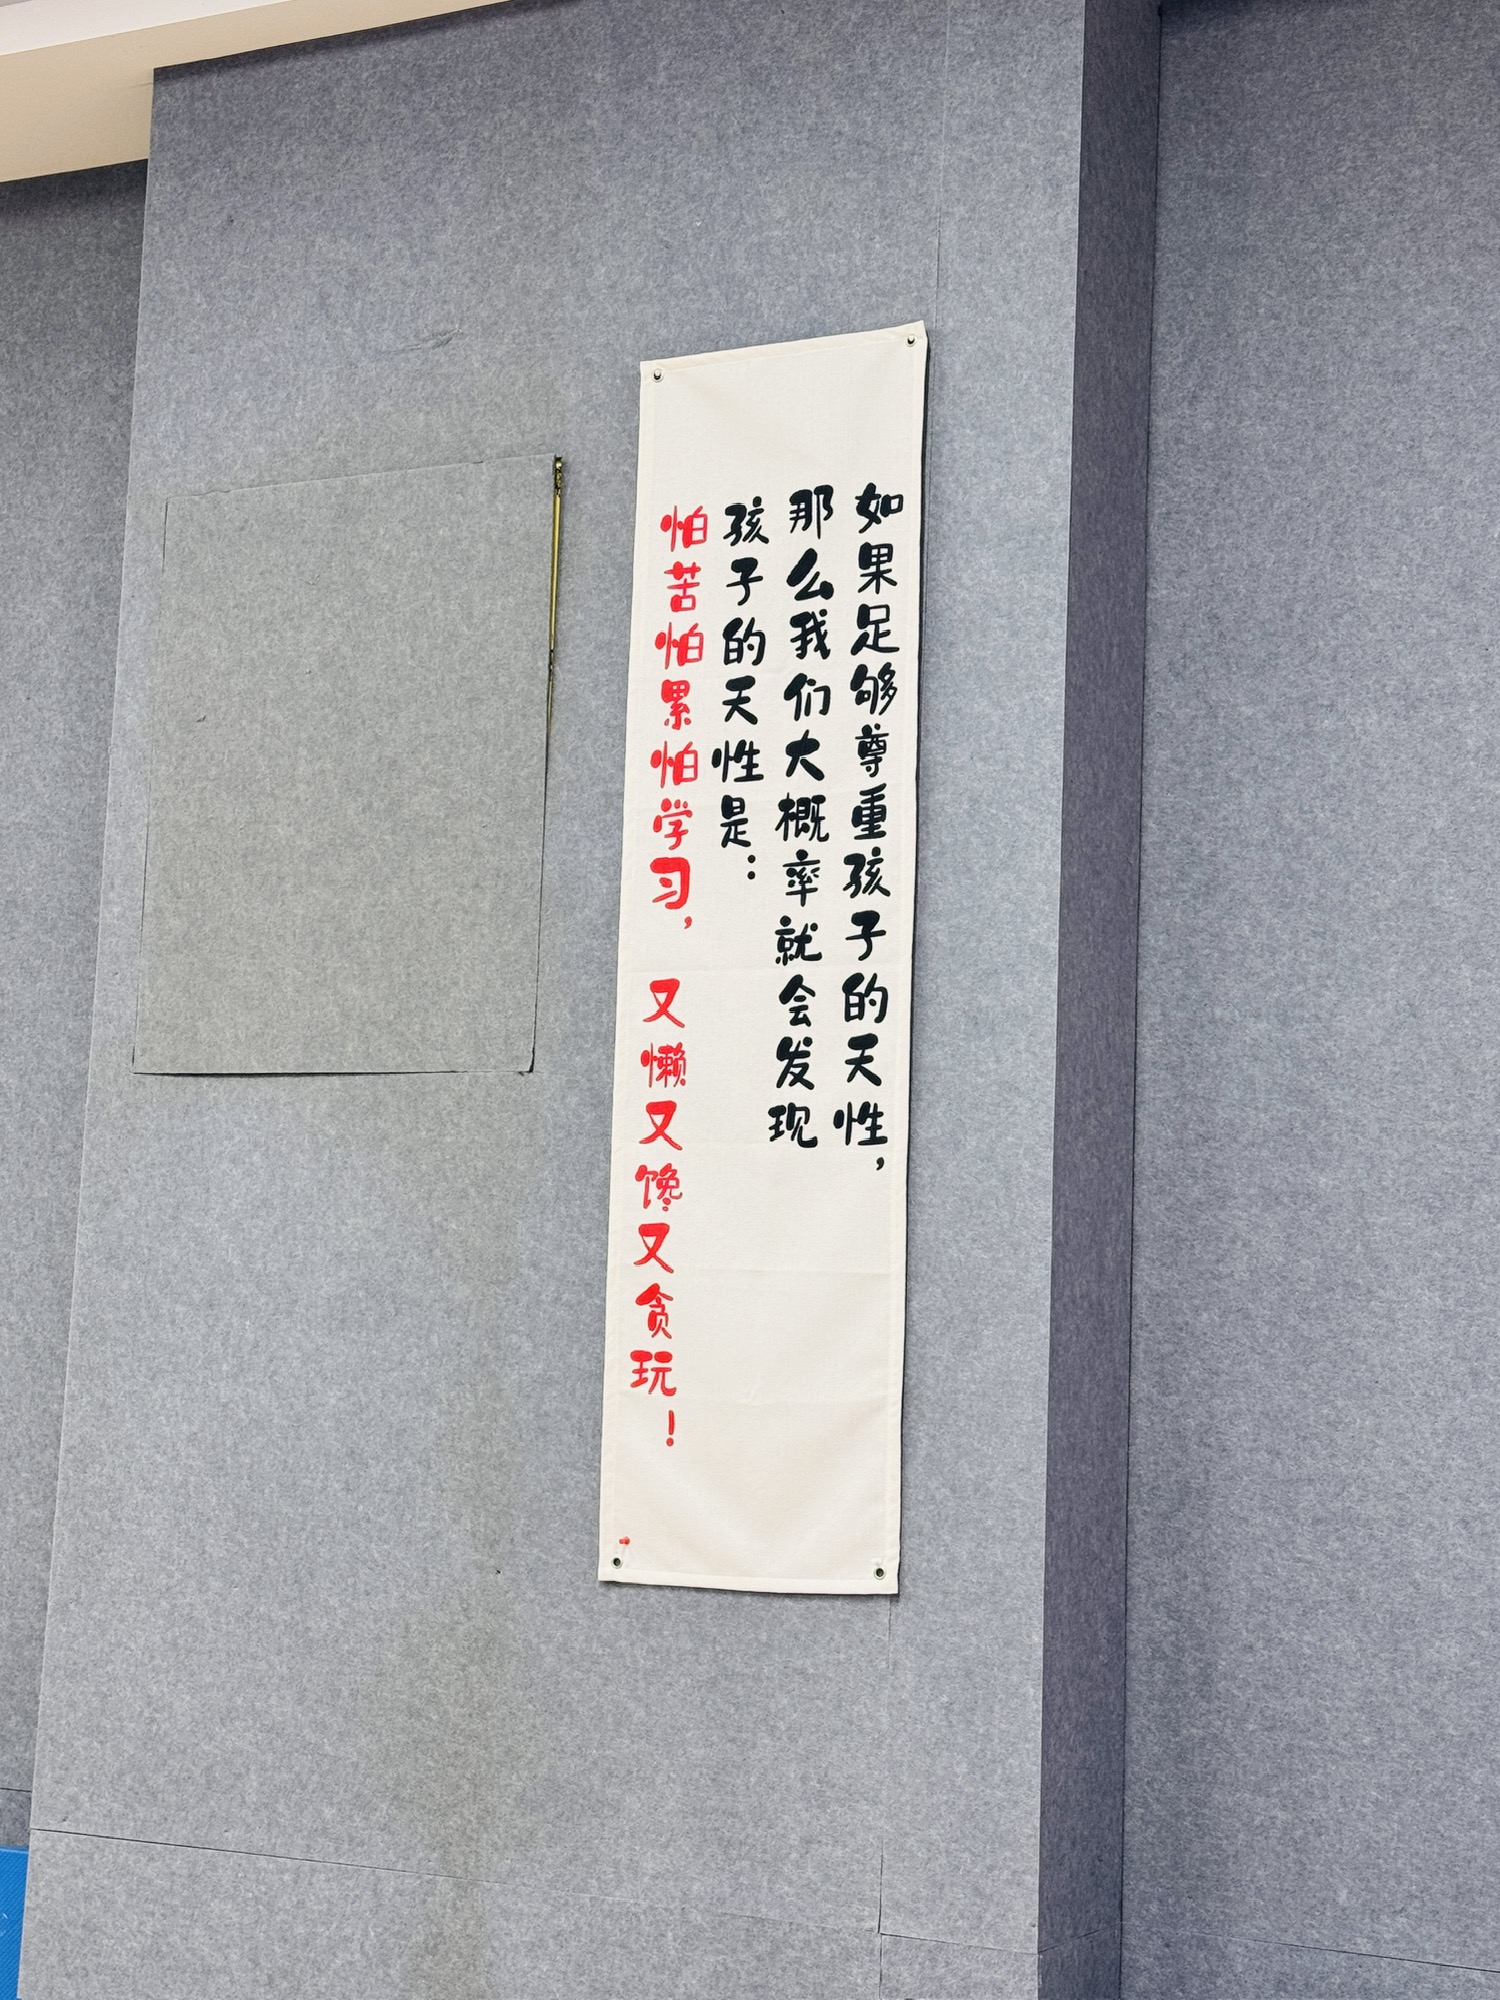 如果足够尊重孩子的天性，
那么我们大概率就会发现
孩子的天性是：
怕苦怕累怕学习，又懒又馋又贪玩！